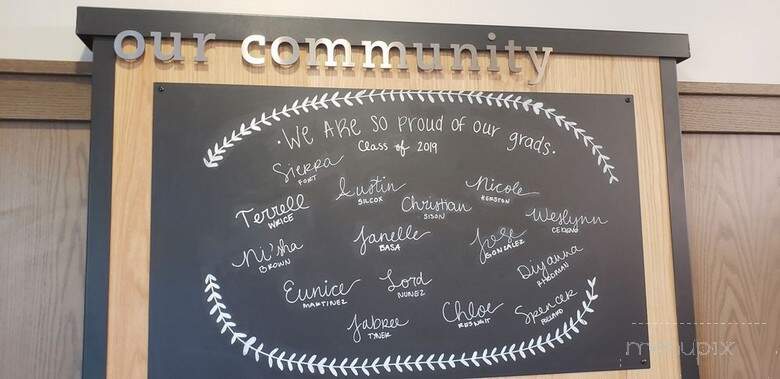 our community
·We ARe so proud of our grads.
Class of 2019
Sierra
FORT
Austin
SILCOX
Nicole
KERSTON
Terrell
WRICE
Christian
SISON
Weslynn
CEDENO
Ni'sha
BROWN
Janelle
BASA
Jose
GONZALEZ
Diyanna
Eunice
MARTINEZ
Lord
NUNEZ
Jabree
TYNER
Chloe
Spencer
menupix